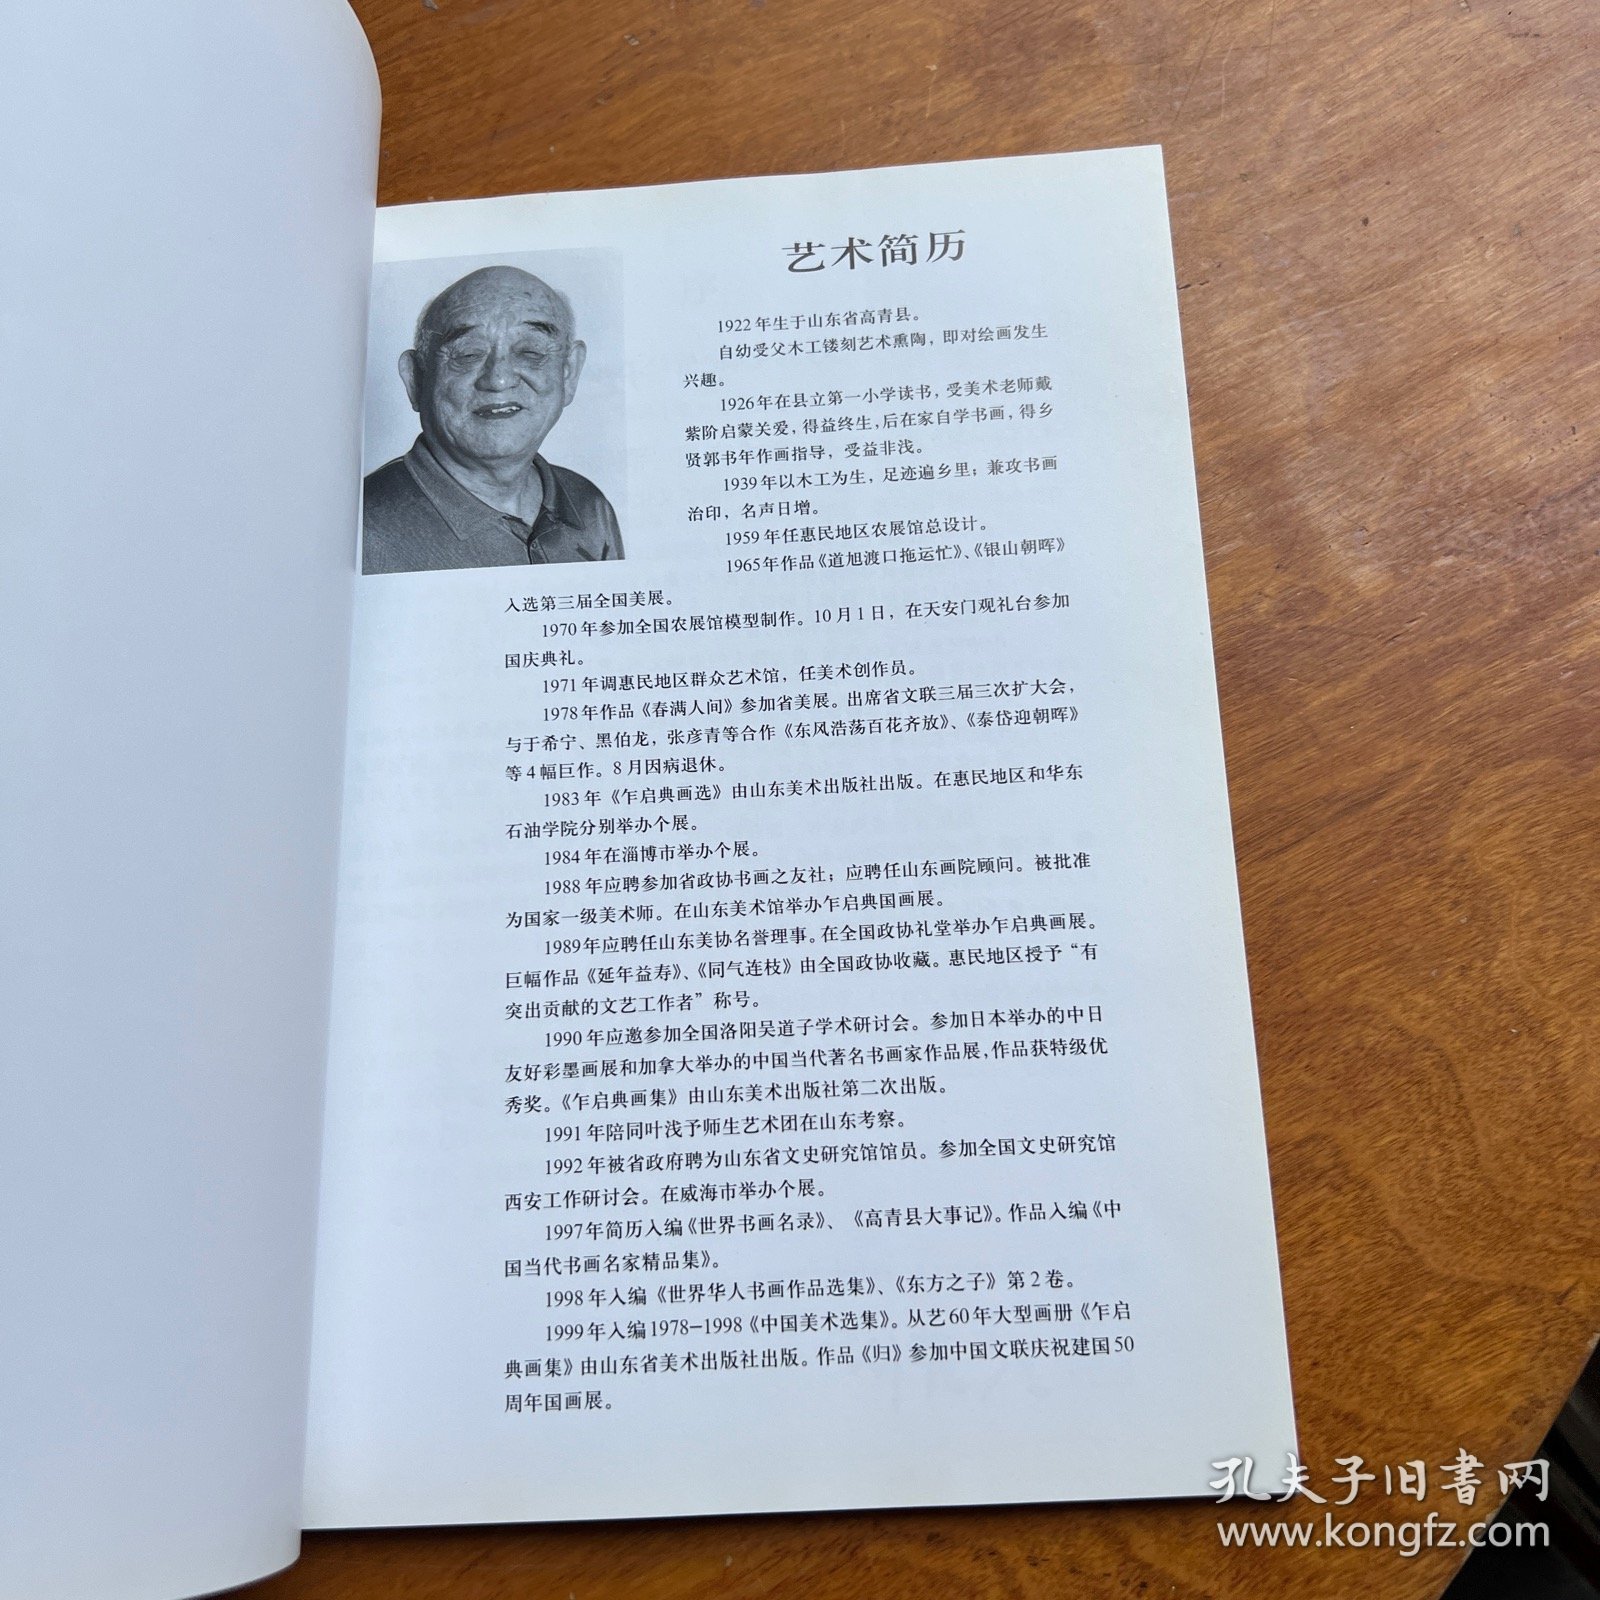 艺术简历
1922年生于山东省高青县。
自幼受父木工镂刻艺术熏陶，即对绘画发生
兴趣。
1926年在县立第一小学读书，受美术老师戴
紫阶启蒙关爱，得益终生，后在家自学书画，得乡
贤郭书年作画指导，受益非浅。
1939年以木工为生，足迹遍乡里；兼攻书画
治印，名声日增。
1959年任惠民地区农展馆总设计。
1965年作品《道旭渡口拖运忙》、《银山朝晖》
入选第三届全国美展。
1970年参加全国农展馆模型制作。10月1日，在天安门观礼台参加
国庆典礼。
1971年调惠民地区群众艺术馆，任美术创作员。
1978年作品《春满人间》参加省美展。出席省文联三届三次扩大会，
与于希宁、黑伯龙，张彦青等合作《东风浩荡百花齐放》、《泰岱迎朝晖》
等4幅巨作。8月因病退休。
1983年《乍启典画选》由山东美术出版社出版。在惠民地区和华东
石油学院分别举办个展。
1984年在淄博市举办个展。
1988年应聘参加省政协书画之友社；应聘任山东画院顾问。被批准
为国家一级美术师。在山东美术馆举办乍启典国画展。
1989年应聘任山东美协名誉理事。在全国政协礼堂举办乍启典画展。
巨幅作品《延年益寿》、《同气连枝》由全国政协收藏。惠民地区授予“有
突出贡献的文艺工作者”称号。
1990年应邀参加全国洛阳吴道子学术研讨会。参加日本举办的中日
友好彩墨画展和加拿大举办的中国当代著名书画家作品展，作品获特级优
秀奖。《乍启典画集》由山东美术出版社第二次出版。
1991年陪同叶浅予师生艺术团在山东考察。
1992年被省政府聘为山东省文史研究馆馆员。参加全国文史研究馆
西安工作研讨会。在威海市举办个展。
1997年简历入编《世界书画名录》、《高青县大事记》。作品入编《中
国当代书画名家精品集》。
1998年入编《世界华人书画作品选集》、《东方之子》第2卷。
1999年入编1978—1998《中国美术选集》。从艺60年大型画册《乍启
典画集》由山东省美术出版社出版。作品《归》参加中国文联庆祝建国50
周年国画展。
孔夫子旧书网
www.kongfz.com